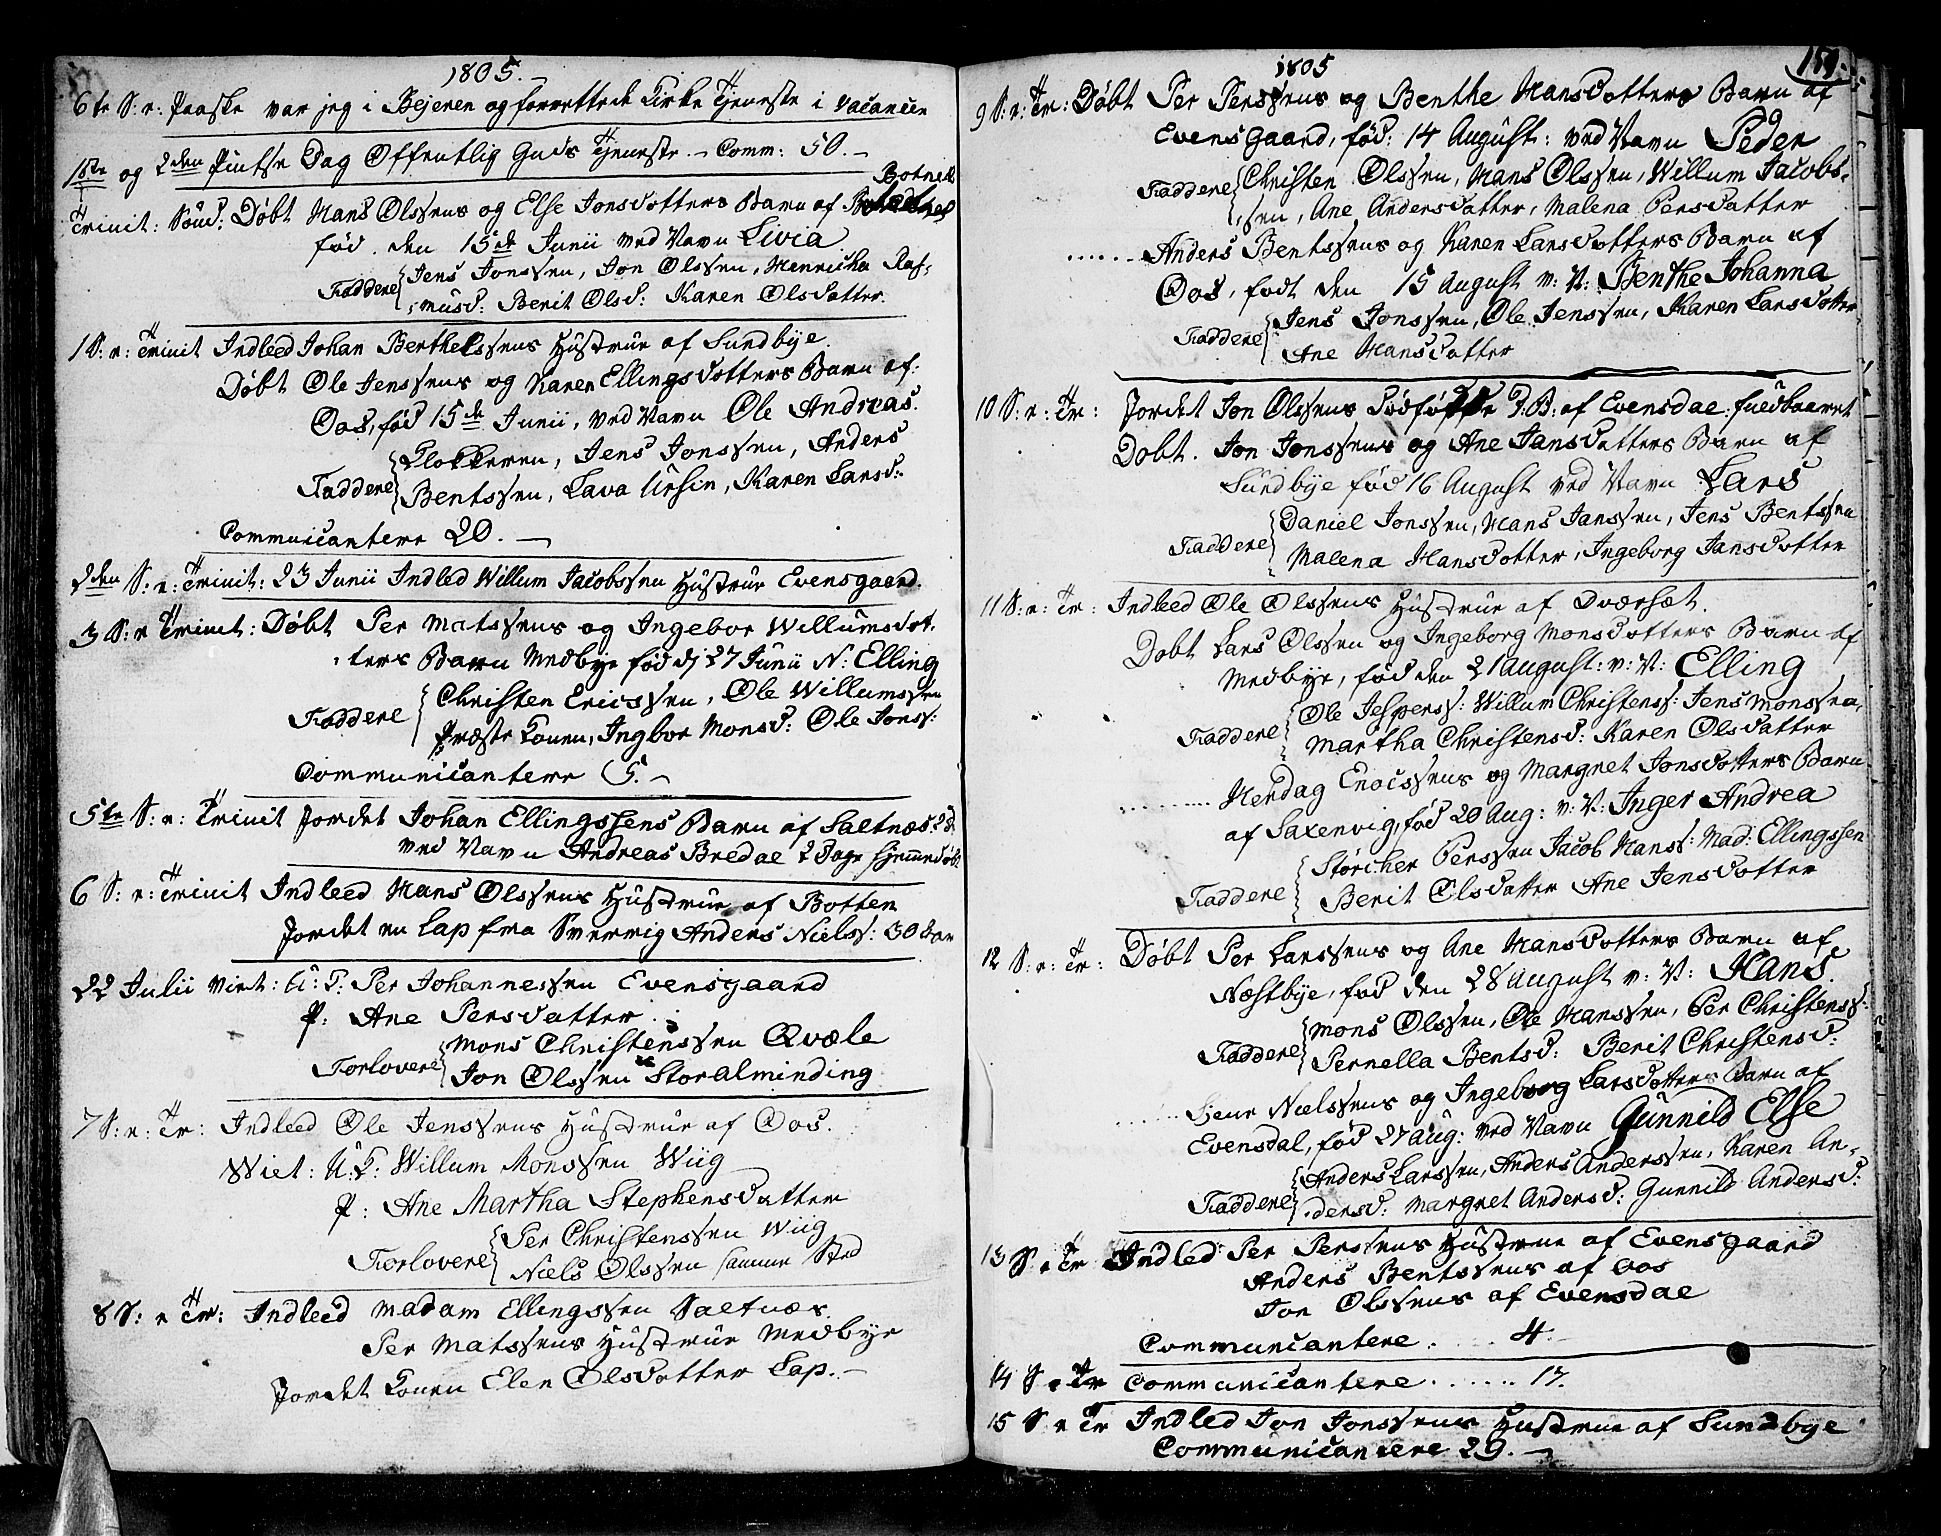 1805.
6te S: e: Paaske var jeg i Bejeren og forrettede Kirke Tjeneste i vacancien
1ste og 2den Pintse Dag Offentlig Guds Tjeneste. – Comm: 50. –
Botnet
Trinit: Sønd: Døbt Hans Olssens og Else Jonsdotters Barn af
fød den 15de Junii ved Navn Livia
Faddere Jens Jonssen, Jon Olssen, Henricha Ras-
musd: Berit Olsd: Karen Olsdatter.
1 S: e: Trinit Indleed Johan Berthelssens Hustrue af Sundbye.
Døbt Ole Jenssens og Karen Ellingsdotters Barn af
Oos, fød 15de Junii, ved Navn Ole Andreas.
Klokkeren, Jens Jonssen, Anders
Faddere Bentssen, Lava Ursin, Karen Larsd:
Communicantere 20. –
2den S: e: Trinit: 23 Junii Indled Willum Jacobssen Hustrue Evensgaard.
3 S: e Trinit: Døbt Per Matssens og Ingebor Willumsdot-
ters Barn Medbye fød dj 27 Junii N: Elling
Christen Ericssen, Ole Willumssen
Faddere Præste Konen, Ingbor Monsd: Ole Jonss:
Communicantere 5. –
5te S: e: Trinit Jordet Johan Ellingssens Barn af Saltnæs
ved Navn Andreas Bredal 2 Dage hjemmedøbt
6 S: e: Trinit Indleed Hans Olssens Hustrue af Botten
Jordet en Lap fra Sverrig Anders Nielss: 30 Aar
22 Julii Viet: U: K: Per Johannessen Evensgaard
P: Ane Persdatter
Mons Christenssen Qvæle
Forlovere Jon Olssen Storalminding
7 S: e: Tr: Indleed Ole Jenssens Hustrue af Oos.
Wiet: U: K: Willum Monssen Wiig
P: Ane Martha Stephensdatter
Per Christenssen Wiig
Forlovere Niels Olssen samme Sted
8 S: e Tr: Indleed Madam Ellingssen Saltnæs
Per Matssens Hustrue Medbye
Jordet Konen Elen Olsdotter Lap. –
1805
159.
9 S: e: Tr: Døbt Per Perssens og Benthe Hansdotters Barn af
Evensgaard, fød: 14 August: ved Navn Peder
Faddere Christen Olssen, Hans Olssen, Willum Jacobs-
sen, Ane Andersdatter, Malena Persdatter
Anders Bentssens og Karen Larsdotters Barn af
Oos, født den 15 August v: N: Benthe Johanna
Jens Jonssen, Ole Jenssen, Karen Larsdotter
Faddere Ane Hansdotter
10 S: e: Tr: Jordet Jon Olssens Dødfødde P: B: af Evensdal:
Døbt. Jon Jonssens og Ane Jansdotters Barn af
Sundbye fød 16 August ved Navn Lars
Daniel Jonssen, Hans Janssen, Jens Bentssen
Faddere Malena Hansdotter, Ingeborg Jansdotter
11 S: e: Tr: Indleed Ole Olssens Hustrue af Oversæt.
Døbt Lars Olssen og Ingeborg Monsdotters Barn af
Medbye, fød den 21 August: v: N: Elling
Ole Jesperss: Willum Christenss: Jens Monssen,
Faddere Martha Christensd: Karen Olsdatter
Hendag Enocssens og Margret Jonsdotters Barn
af Saxenvig, fød 20 Aug: v: N: Inger Andrea
Størcher Perssen Jacob Hanss: Mad: Ellingssen
Faddere Berit Olsdatter Ane Jensdotter
12 S: e: Tr: Døbt Per Larssens og Ane Hansdotters Barn af
Næstbye, fød den 28 August v: N: Hans
Mons Olssen, Ole Hanssen, Per Christenss:
Faddere Pernella Bentsd: Berit Christensd:
Nielssens og Ingeborg Larsdotters Barn af
Evensdal, fød 27 Aug: ved Navn Gunnild Else
Anders Larssen, Anders Anderssen, Karen An-
Faddere dersd: Margret Andersd: Gunnild Andersd:
13 S e Tr Indled Per Perssens Hustrue af Evensgaard
Anders Bentssens af Oos
Jon Olssens af Evensdal
Communicantere. .... 4.
14 S. e Tr Communicantere ...... 17.
15 S e Tr Indled Jon Jonssens Hustrue af Sundbye
Communicantere 29. –